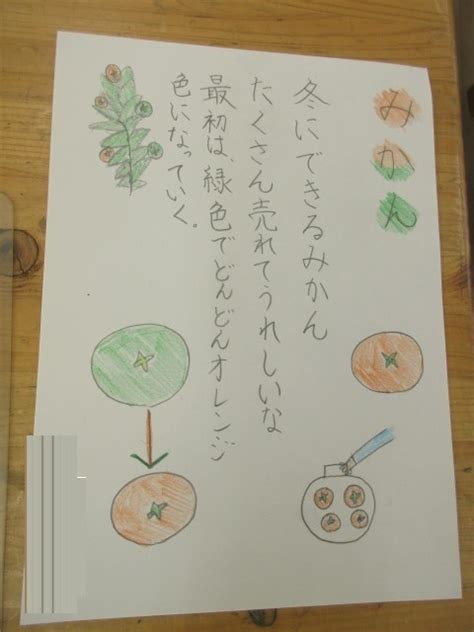 みかん
冬にできるみかん
たくさん売れてうれしいな
最初は、緑色でどんどんオレンジ
色になっていく。